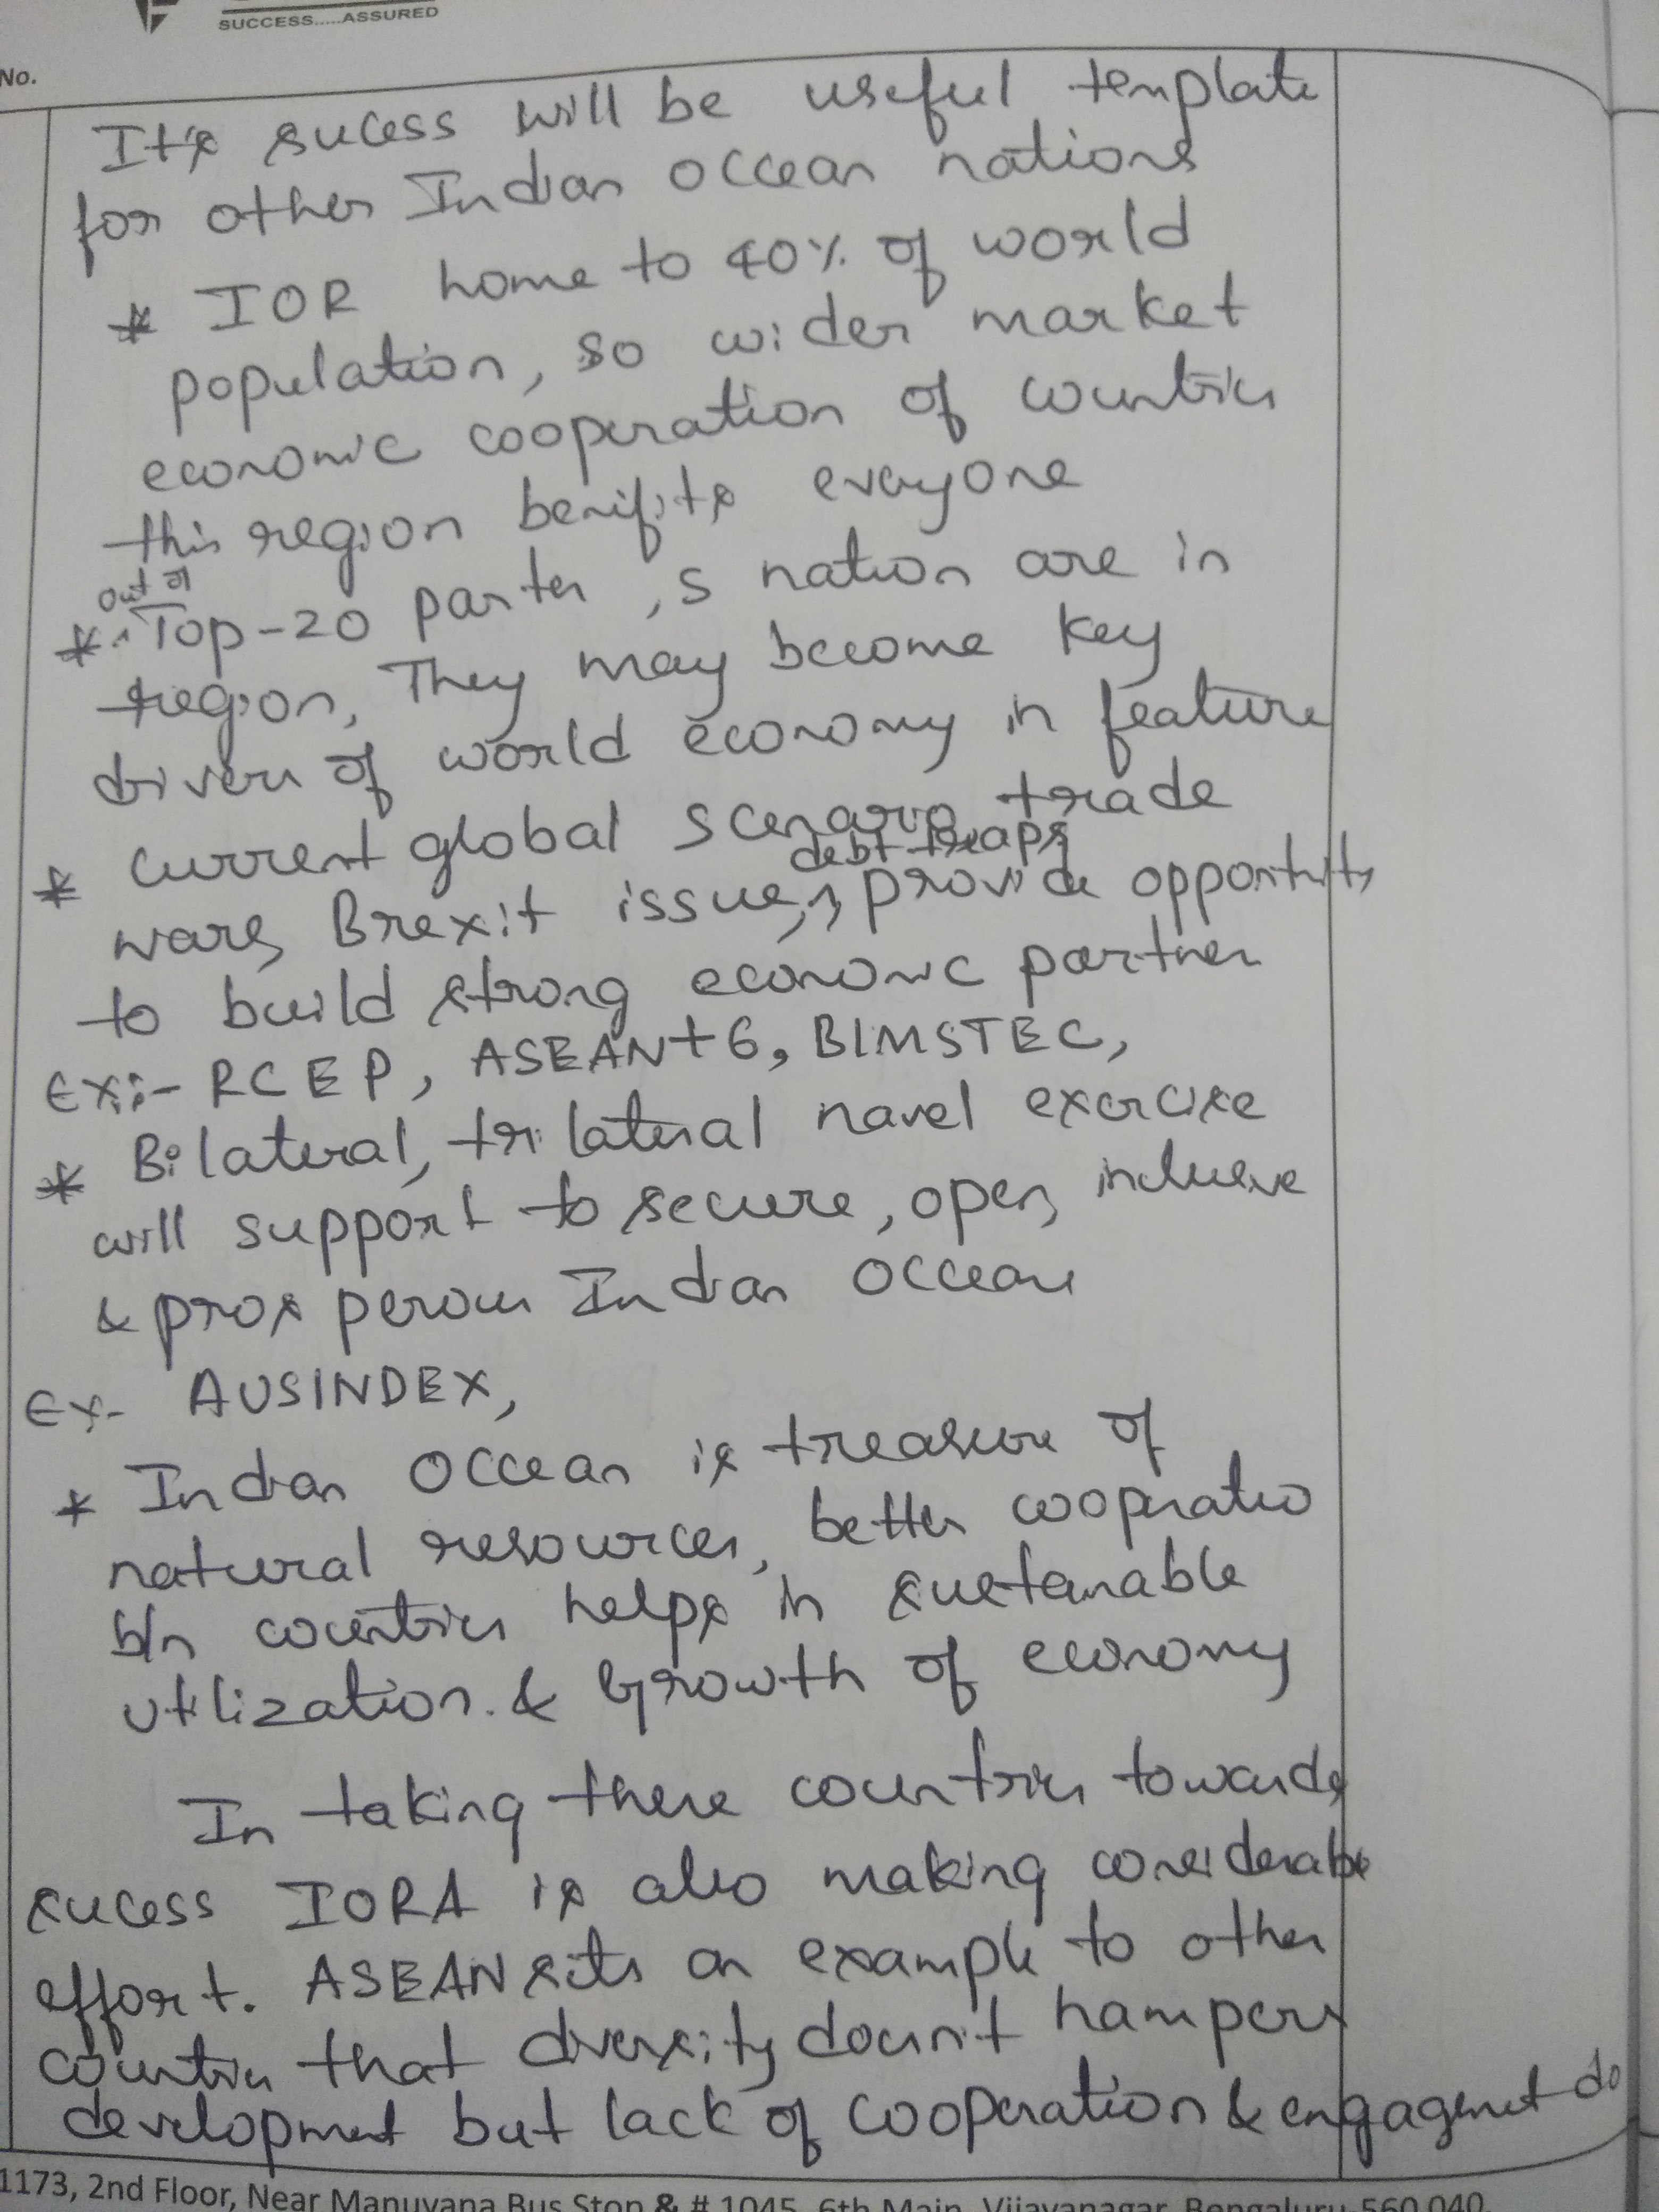 SUCCESS.....ASSURED
No.
It's sucess will be useful template
for other Indian Occean nations
* IOR home to 40% of world
population, so wider market
economic cooperation of countries
this region benifits everyone
out of
* Top-20 parter, 5 nation are in
region, They may become key
driver of world economy in feature
* Current global scenario trade
debt traps
wars, Brexit issues, provide opportunity
to build strong economic partner
Ex:- RCEP, ASEAN+6, BIMSTEC,
* Bilateral, trilateral navel exercise
will support to secure, open, inclusive
& prosperous Indian Occean
Ex- AUSINDEX,
* Indian Occean is treasure of
natural resources, better cooperatio
b/n countries helps in sustainable
utilization. & Growth of economy
In taking these countries towards
sucess IORA is also making considerable
effort. ASEAN sets an example to other
countries that diversity doesn't hampers
development but lack of cooperation & engagement do
1173, 2nd Floor, Near Manuvana Bus Stop & # 1045, 6th Main, Vijayanagar, Bengaluru-560 040.